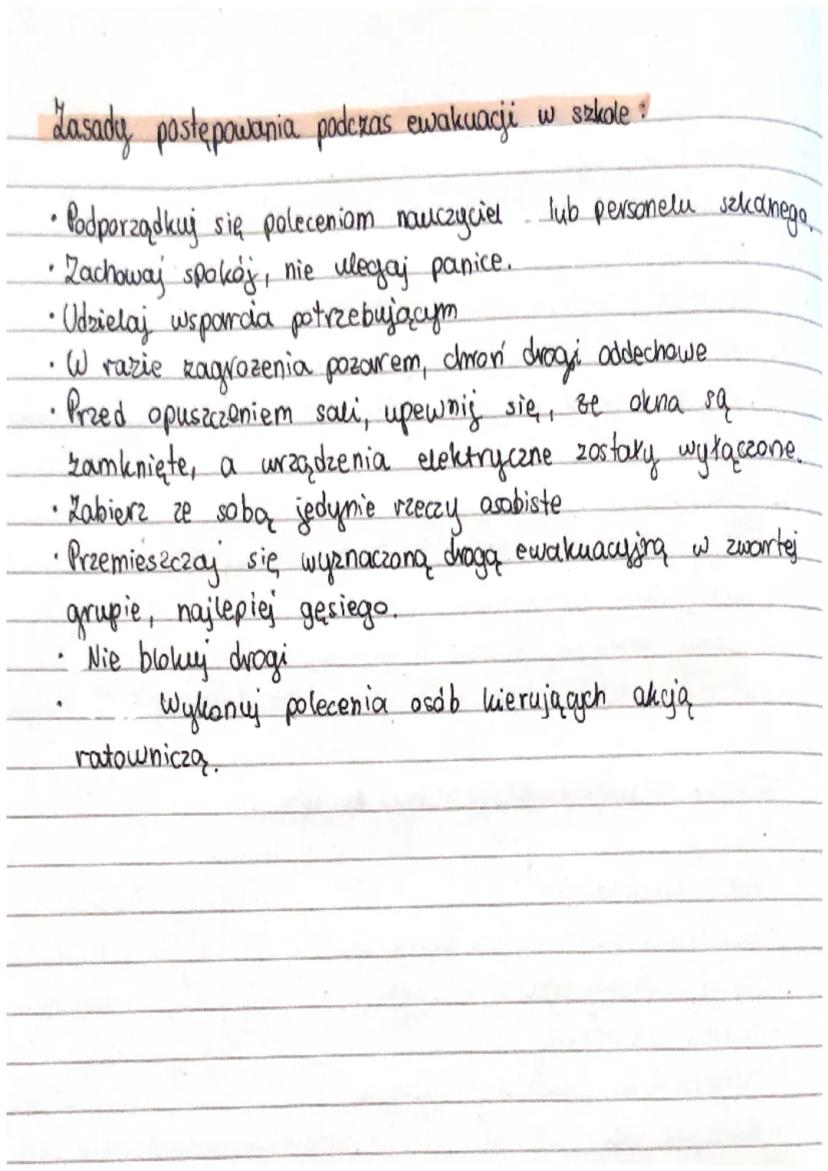 Zasady postępowania podczas ewakuacji w szkole:
• Podporządkuj się poleceniom nauczyciel lub personelu szkolnego.
• Zachowaj spokój, nie ulegaj panice.
• Udzielaj wsparcia potrzebującym
• W razie zagrozenia pozarem, chroń drogi oddechowe
• Przed opuszczeniem sali, upewnij się, że okna są
zamknięte, a urządzenia elektryczne zostały wyłączone.
• Zabierz ze sobą jedynie rzeczy osobiste
• Przemieszczaj się wyznaczoną drogą ewakuacyjną w zwartej
grupie, najlepiej gęsiego.
• Nie blokuj drogi
• Wykonuj polecenia osób kierujących akcją
ratowniczą.